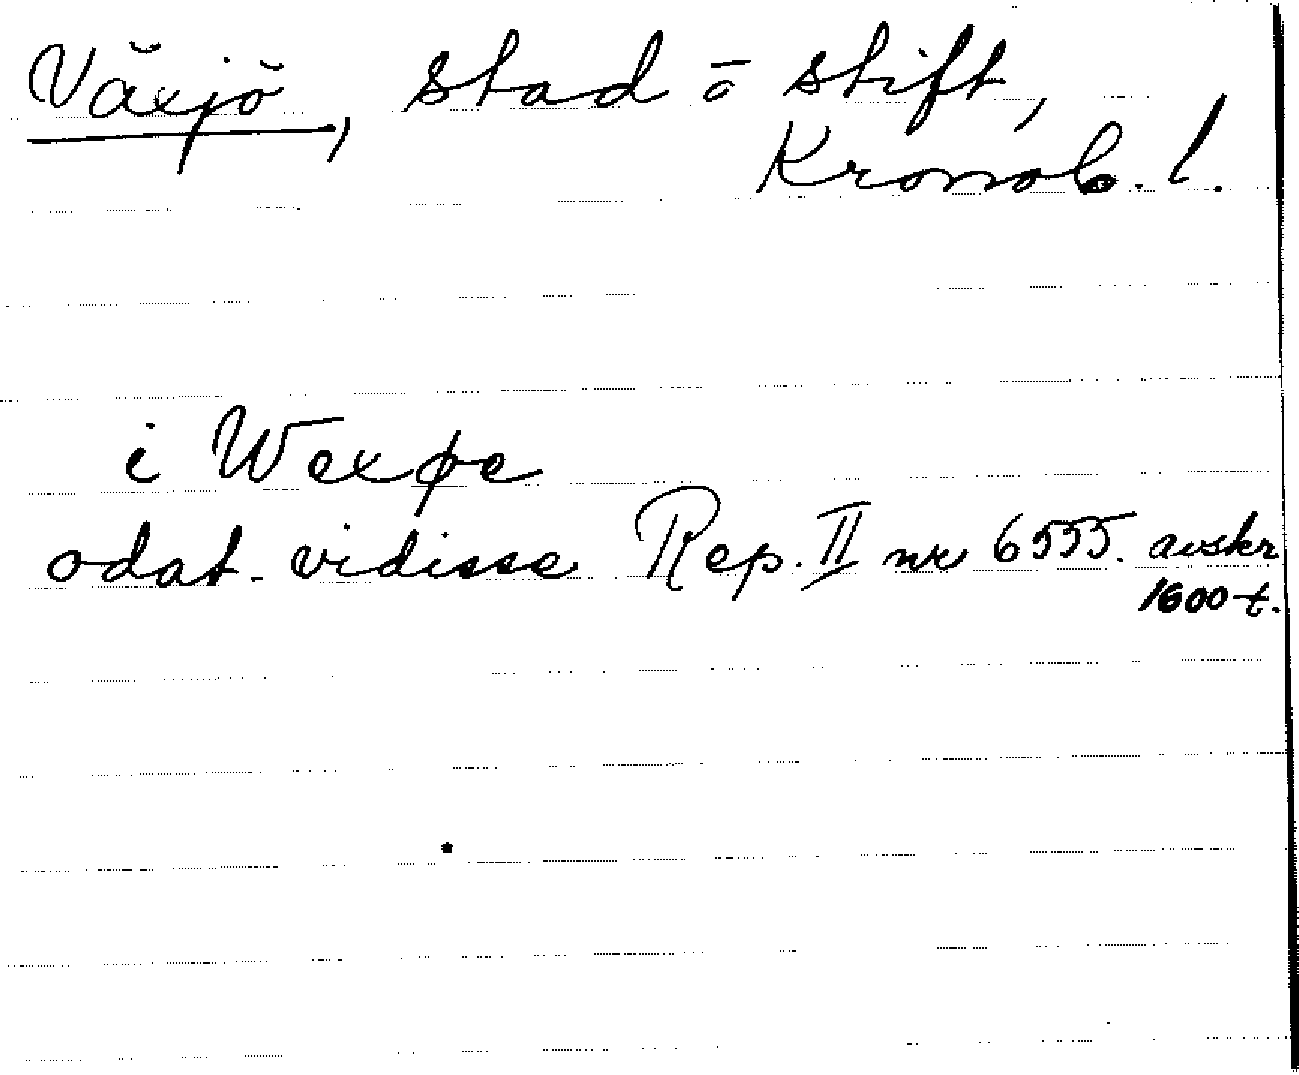 Växjö, stad o stift,
Kronob. l.
i Wexøe
odat. vidisse Rep. II nr 6555. avskr
1600-t.